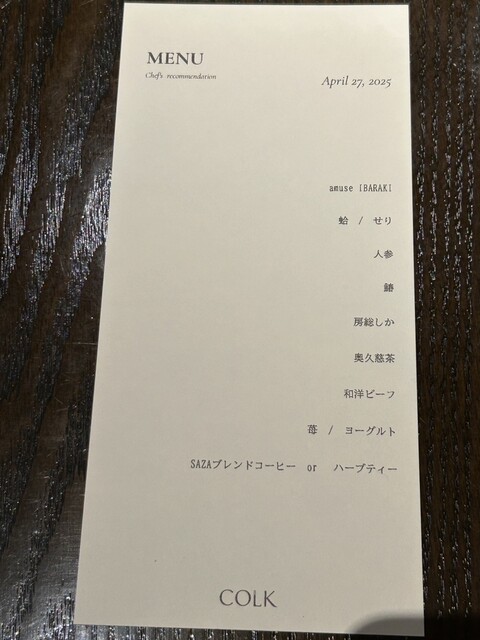 MENU
Chef's recommendation
April 27, 2025
amuse IBARAKI
蛤 / せり
人参
鰆
房総しか
奥久慈茶
和洋ビーフ
苺 / ヨーグルト
SAZAブレンドコーヒー or ハーブティー
COLK